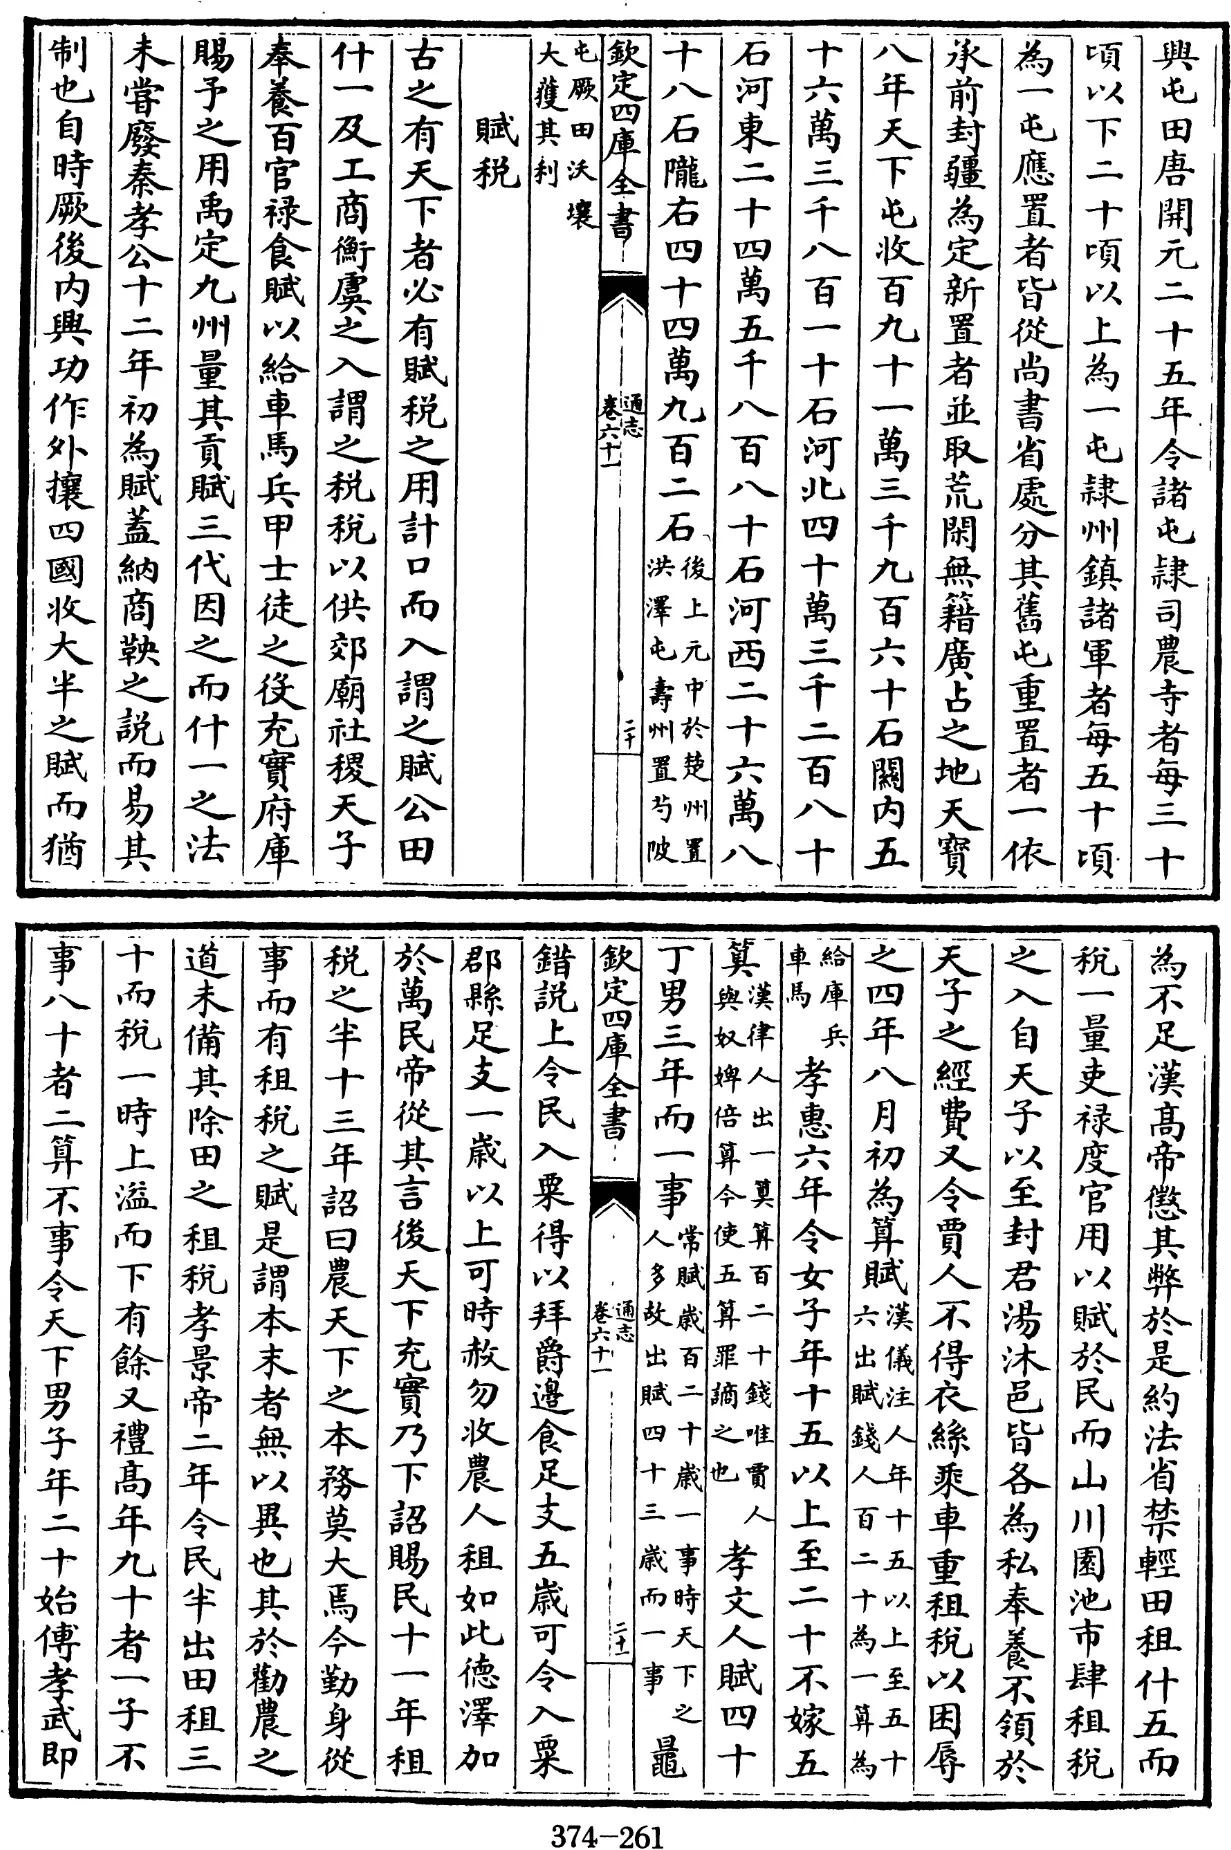 興屯田唐開元二十五年令諸屯隷司農寺者每三十
頃以下二十頃以上為一屯隷州鎮諸軍者每五十頃
為一屯應置者皆從尚書省處分其舊屯重置者一依
承前封疆為定新置者並取荒閑無籍廣占之地天寳
八年天下屯收百九十一萬三千九百六十石關内五
十六萬三千八百一十石河北四十萬三千二百八十
石河東二十四萬五千八百八十石河西二十六萬八
十八石隴右四十四萬九百二石後上元中於楚州置洪澤屯壽州置芍陂
欽定四庫全書
通志
卷六十一
二十
屯厥田沃壤大獲其利
賦税
古之有天下者必有賦税之用計口而入謂之賦公田
什一及工商衡虞之入謂之税税以供郊廟社稷天子
奉養百官祿食賦以給車馬兵甲士徒之役充實府庫
賜予之用禹定九州量其貢賦三代因之而什一之法
未嘗廢秦孝公十二年初為賦蓋納商鞅之説而易其
制也自時厥後内興功作外攘四國收大半之賦而猶
為不足漢髙帝懲其弊於是約法省禁輕田租什五而
稅一量吏祿度官用以賦於民而山川園池市肆租税
之入自天子以至封君湯沐邑皆各為私奉養不領於
天子之經費又令賈人不得衣絲乘車重租税以困辱
之四年八月初為算賦漢儀注人年十五以上至五十六出賦錢人百二十為一算為
給庫兵車馬孝惠六年令女子年十五以上至二十不嫁五
算漢律人出一算算百二十錢唯賈人與奴婢倍算今使五算罪謫之也孝文人賦四十
丁男三年而一事常賦歲百二十歲一事時天下之人多故出賦四十三歲而一事鼂
欽定四庫全書
通志
卷六十一
二十一
錯説上令民入粟得以拜爵邊食足支五歲可令入粟
郡縣足支一歲以上可時赦勿收農人租如此德澤加
於萬民帝從其言後天下充實乃下詔賜民十一年租
税之半十三年詔曰農天下之本務莫大焉今勤身從
事而有租税之賦是謂本末者無以異也其於勸農之
道未備其除田之租税孝景帝二年令民半出田租三
十而稅一時上溢而下有餘又禮髙年九十者一子不
事八十者二算不事令天下男子年二十始傅孝武即
374-261